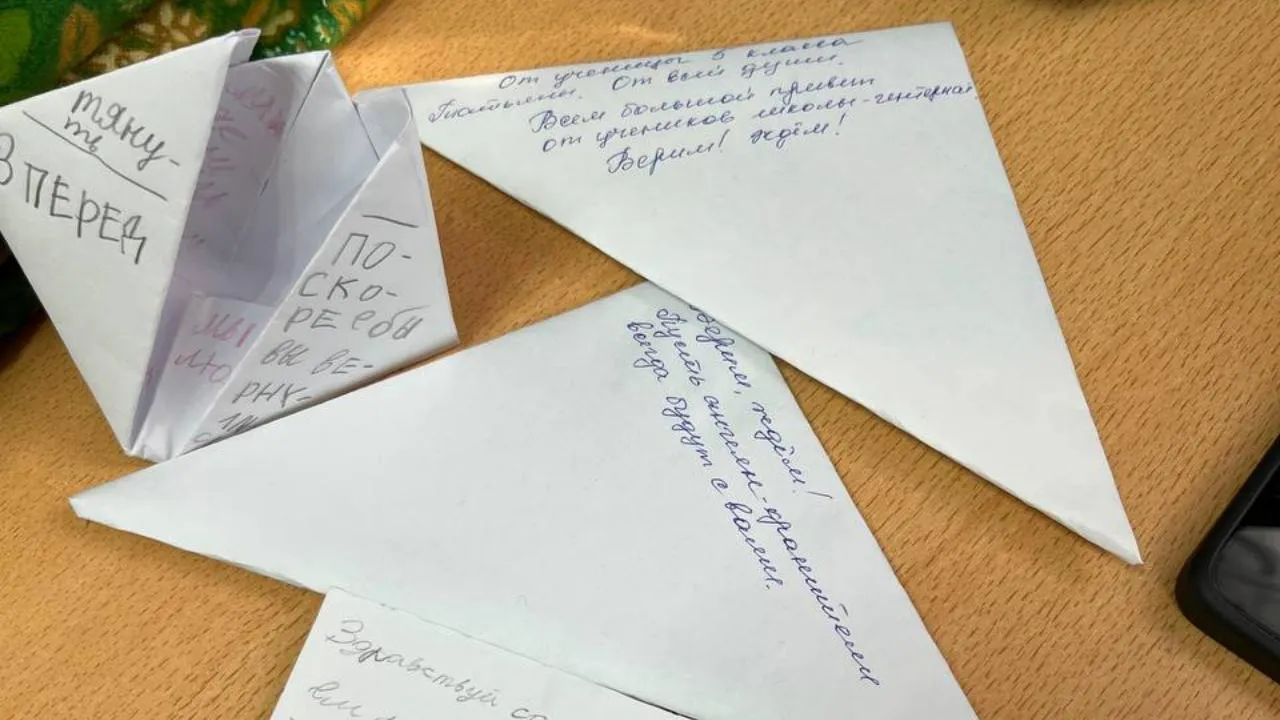 тяну-
ть
ВПЕРЕД
ПО-
СКО-
РЕЕ бЫ
ВЫ ВЕ-
РНУ-
МЫ
ЛЮ
От ученицы 5 класса
Татьяны. От всей души.
Всем большой привет
от учеников школы-интерна
Верим! Ждём!
Верим, ждём!
Пусть ангелы-хранители
всегда будут с вами.
Здравствуй со